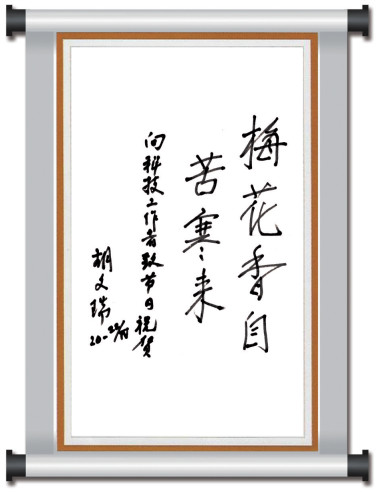 梅花香自
苦寒来
向科技工作者致节日祝贺
胡文瑞